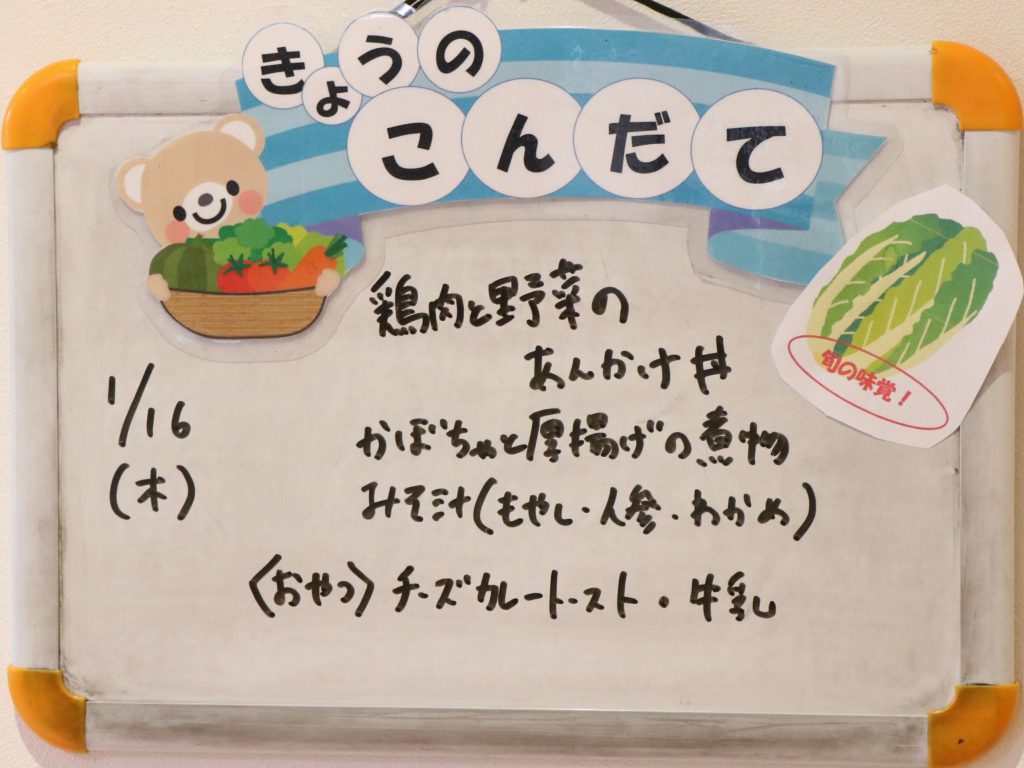 きょうの
こんだて
旬の味覚！
1/16
(木)
鶏肉と野菜の
あんかけ丼
かぼちゃと厚揚げの煮物
みそ汁(もやし・人参・わかめ)
〈おやつ〉チーズカレートースト・牛乳